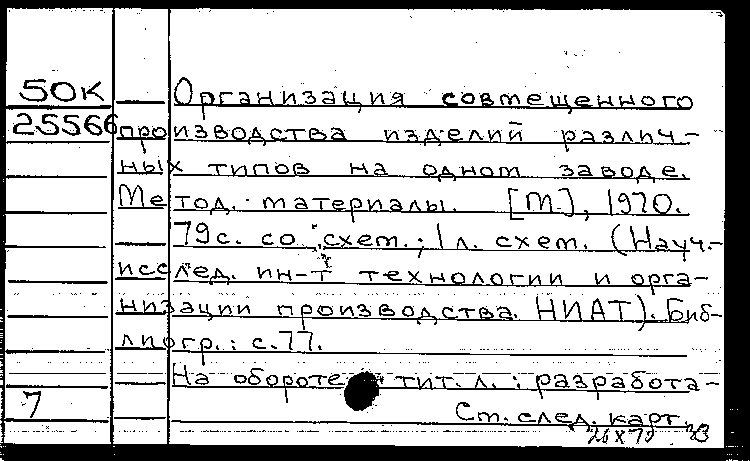 50К Организация совмещенного
25566 производства изделий различ-
ных типов на одном заводе.
Метод. материалы. [М.], 1970.
79с. со схем.; 1 л. схем. (Науч.-
исслед. ин-т технологии и орга-
низации производства. НИАТ). Биб-
лиогр.: с.77.
На обороте тит. л.: разработа-
7 Ст. след. карт.